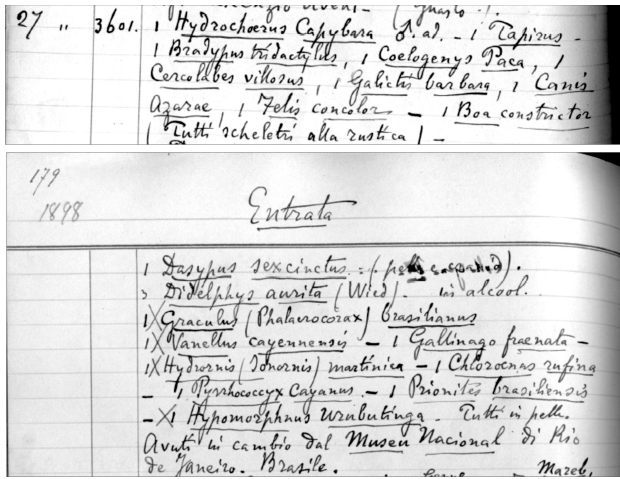 27 " 3601. 1 Hydrochoerus Capybara ♂. ad. - 1 Tapirus -
1 Bradypus tridactylus, 1 Coelogenys Paca, 1
Cercolabes villosus, 1 Galictis barbara, 1 Canis
Azarae, 1 Felis concolor - 1 Boa constrictor
( Tutti scheletri alla rustica ) -
179
1898
Entrata
1 Dasypus sexcinctus. (
3 Didelphys aurita (Wied). in alcool.
1 Graculus (Phalacrocorax) brasilianus
1 Vanellus cayennensis - 1 Gallinago fraenata -
1 Hydrornis (Jonornis) martinica - 1 Chloroenas rufina
- 1 Pyrrhococcyx Cayanus - 1 Prionites brasiliensis
- 1 Hypomorphnus urubutinga. Tutti in pelle.
Avuti in cambio dal Museu Nacional di Rio
de Janeiro. Brasile.